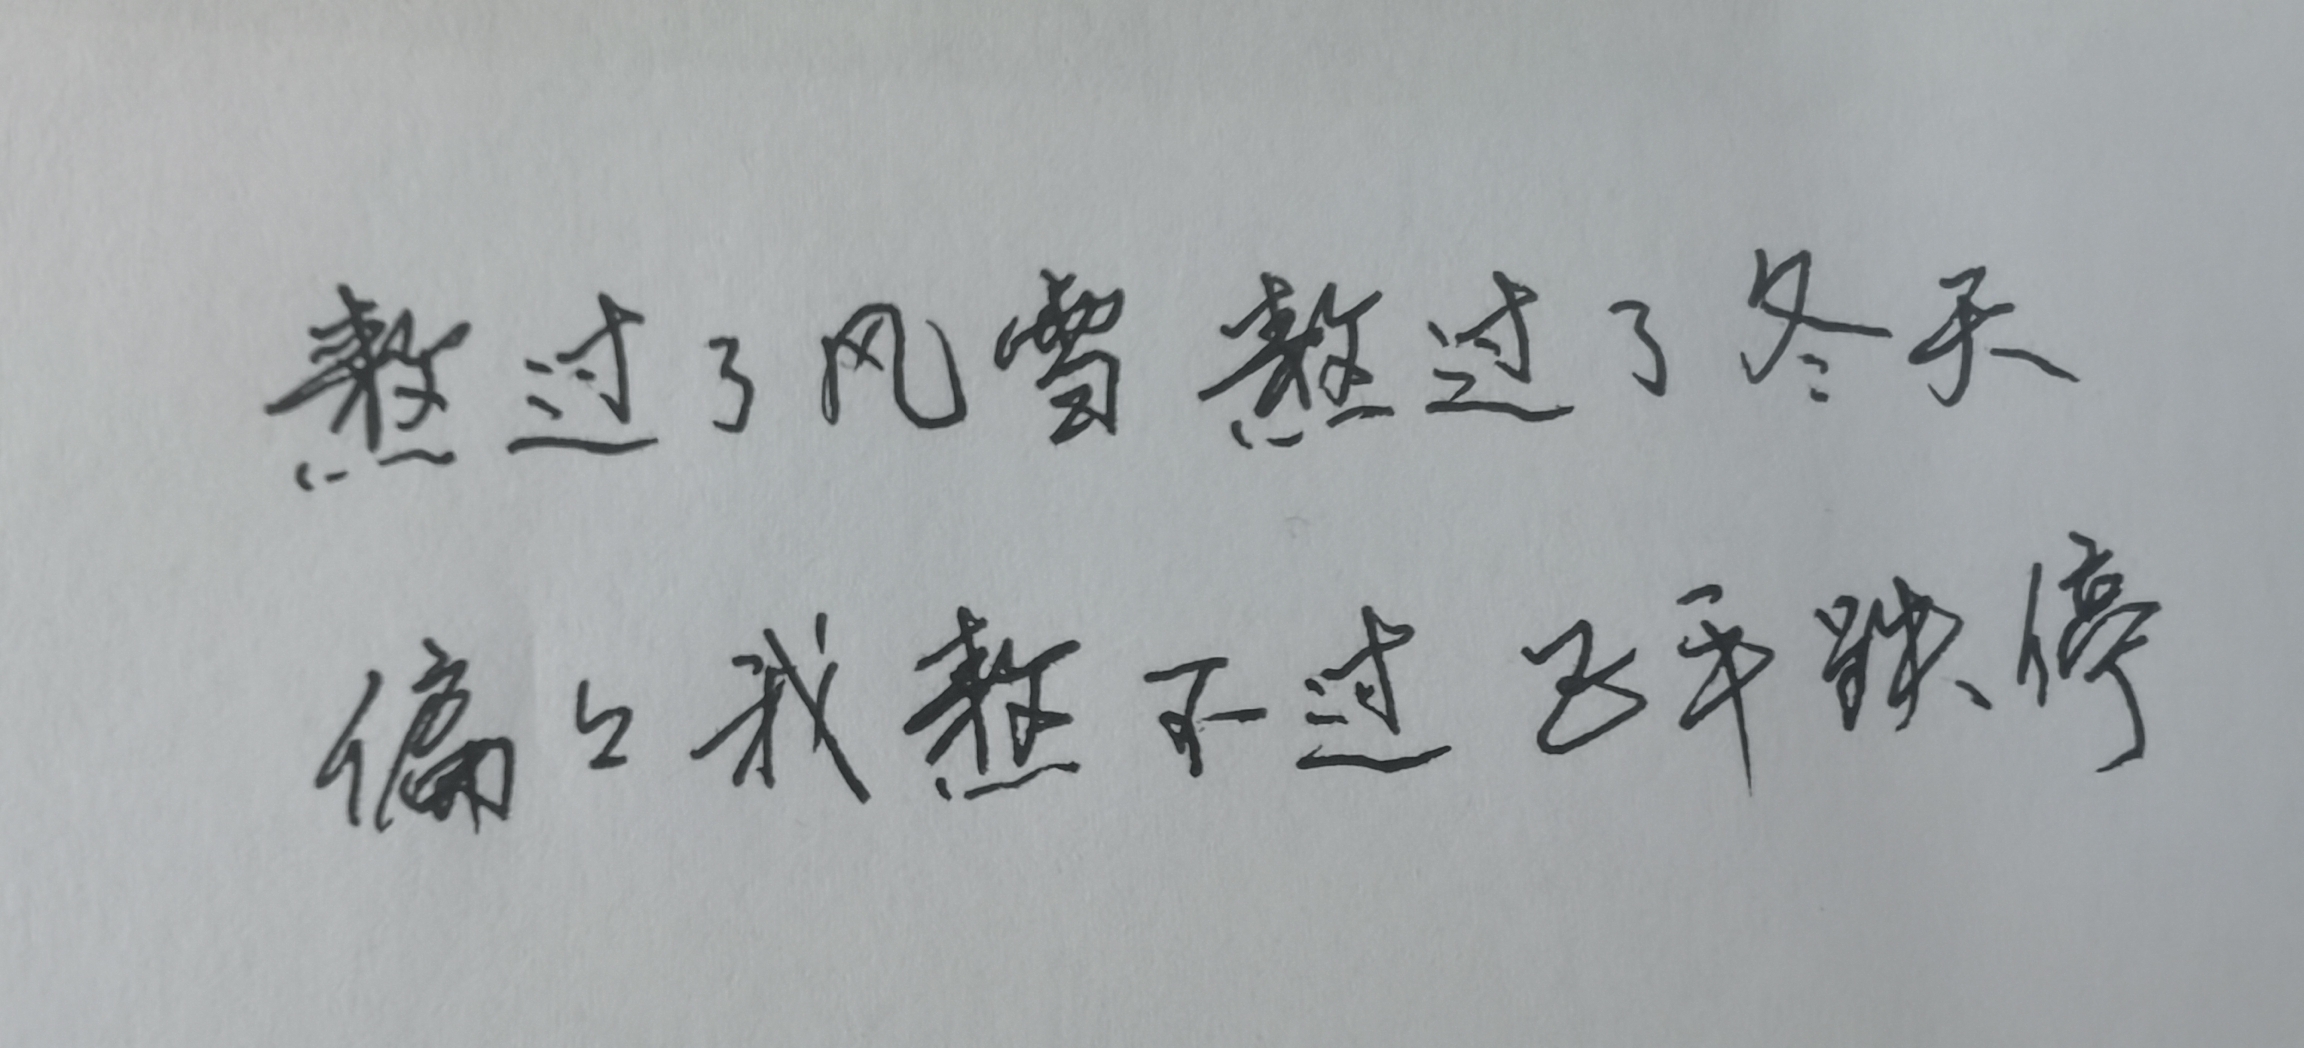 熬过了风雪 熬过了冬天
偏々我熬不过 跌停